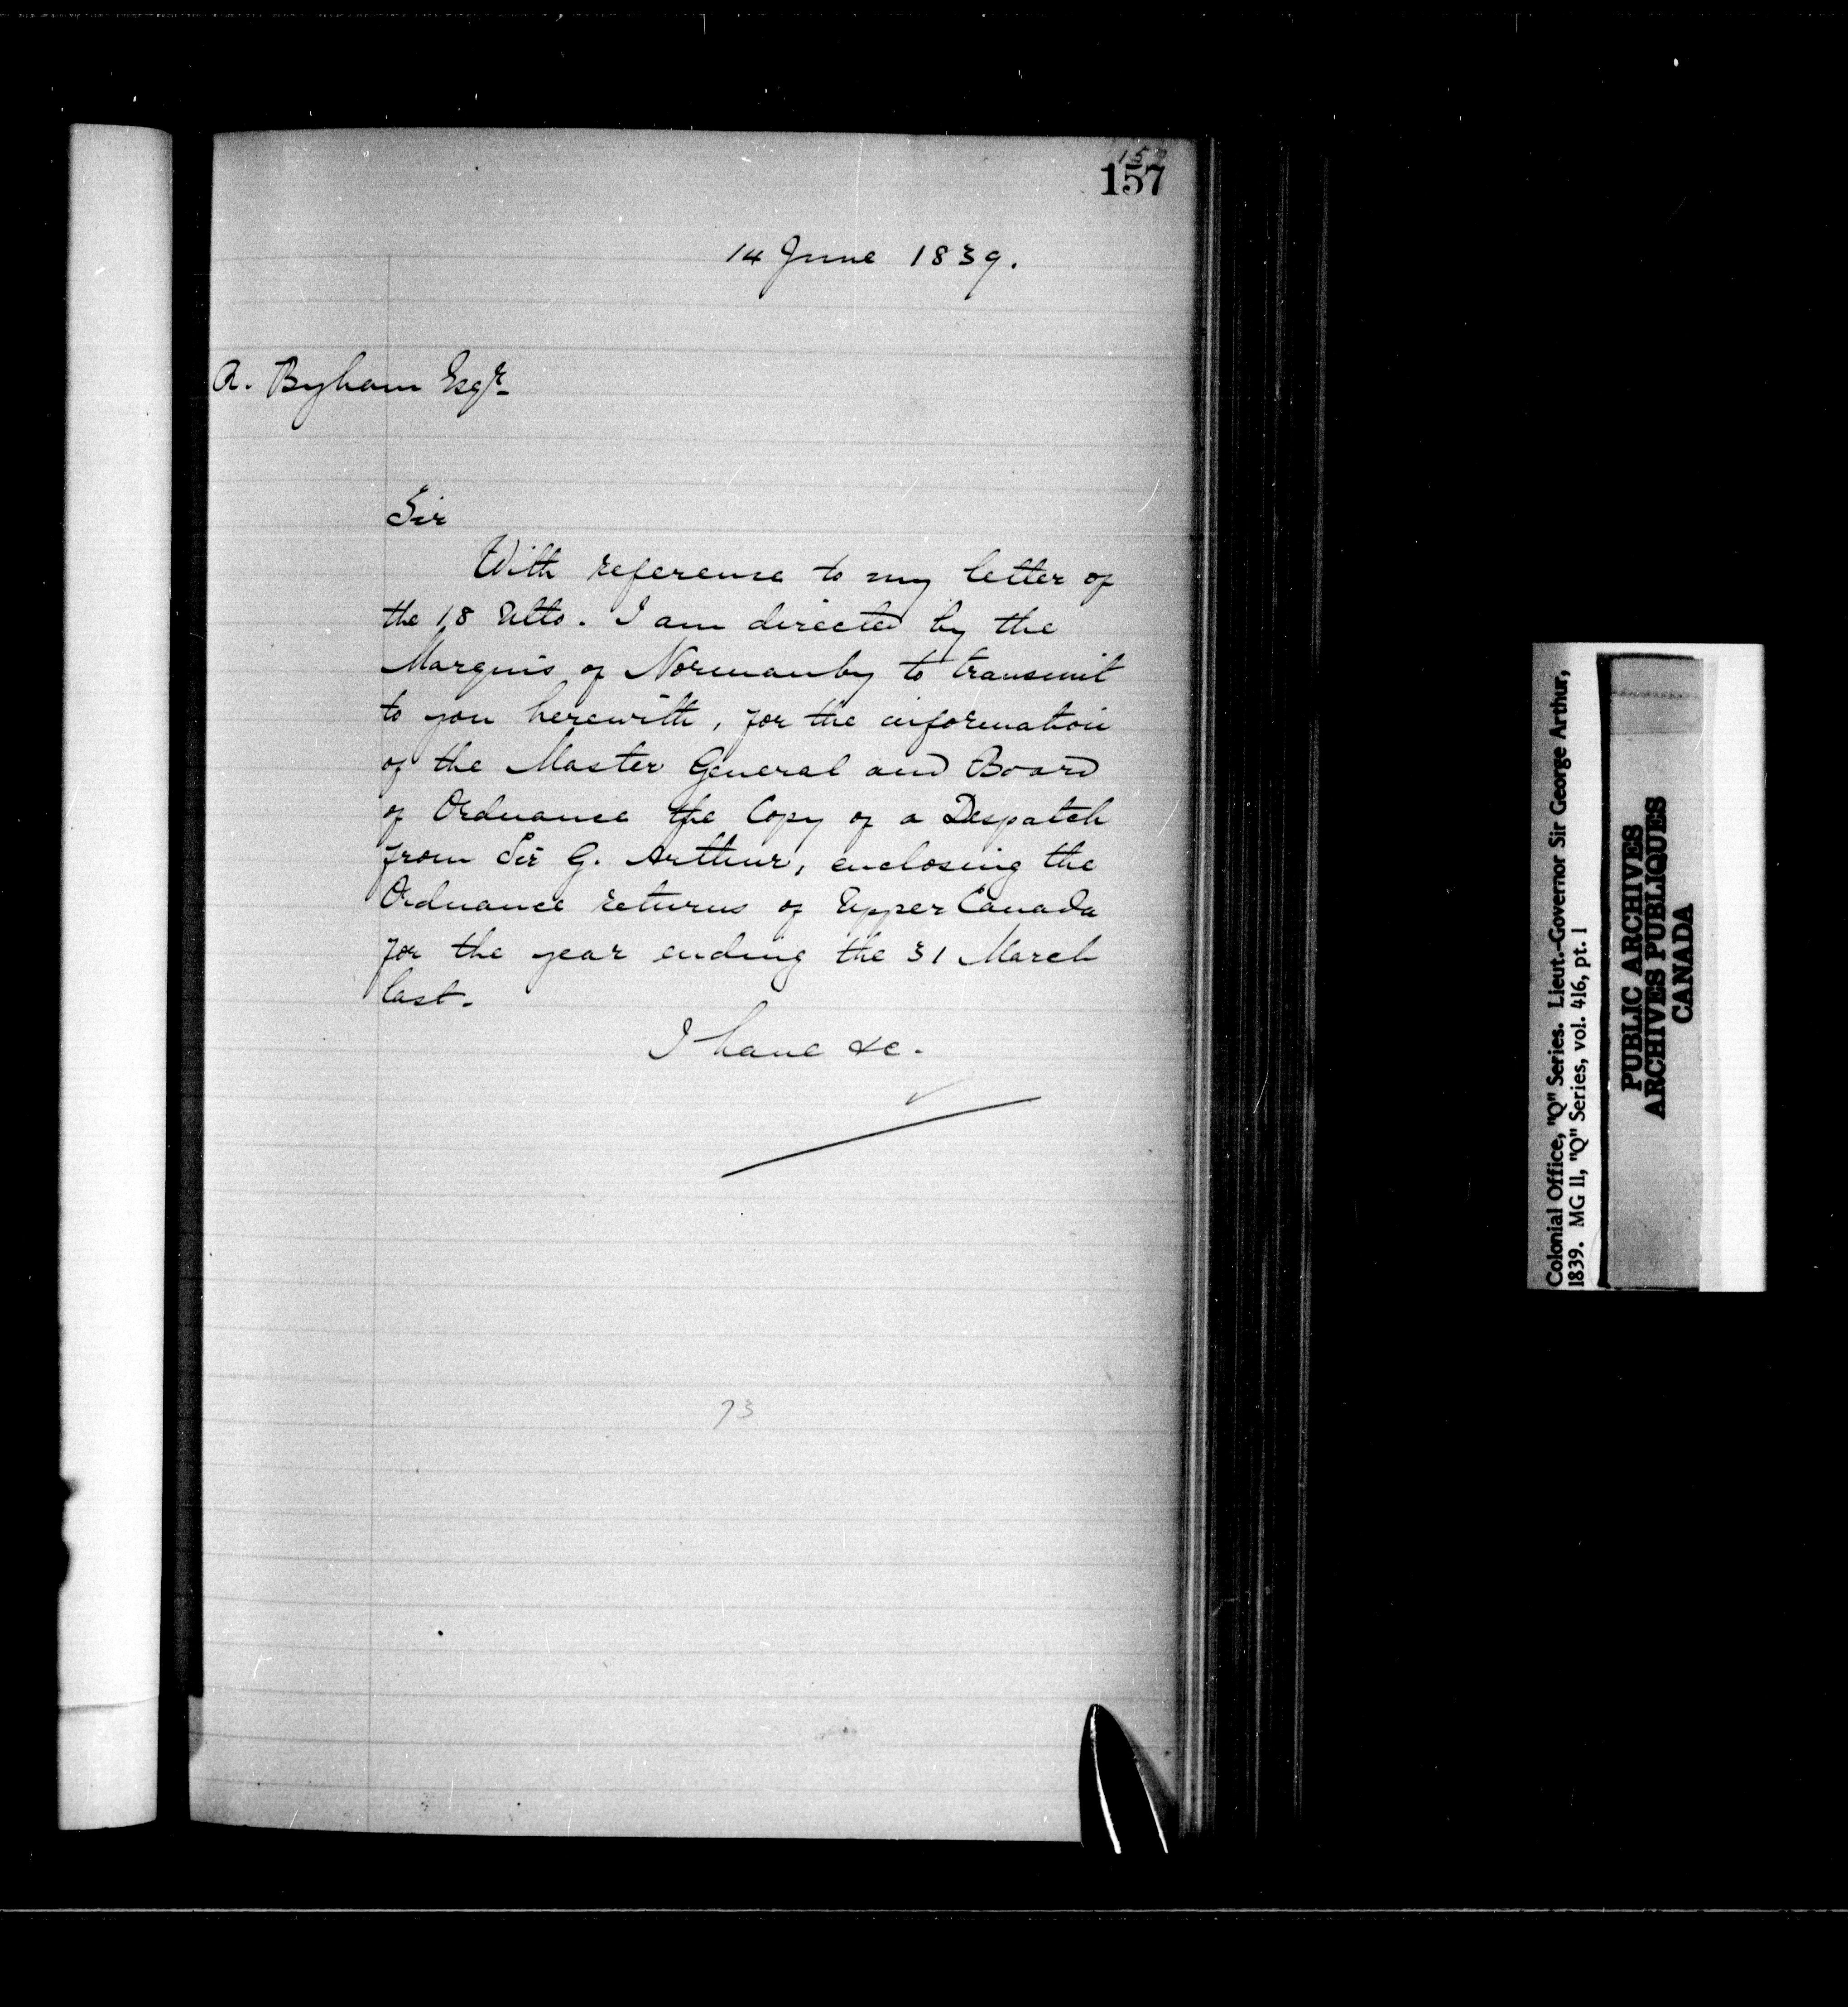 157
157
14 June 1839.
R. Byham Esqr.
Sir
With reference to my letter of
the 18 Ulto. I am directed by the
Marquis of Normanby to transmit
to you herewith, for the information
of the Master General and Board
of Ordnance the Copy of a Despatch
from Sir G. Arthur, enclosing the
Ordnance returns of Upper Canada
for the year ending the 31 March
last.
I have &c.
73
Colonial Office, "Q" Series. Lieut.-Governor Sir George Arthur,
1839. MG 11, "Q" Series, vol. 416, pt. 1
PUBLIC ARCHIVES
ARCHIVES PUBLIQUES
CANADA